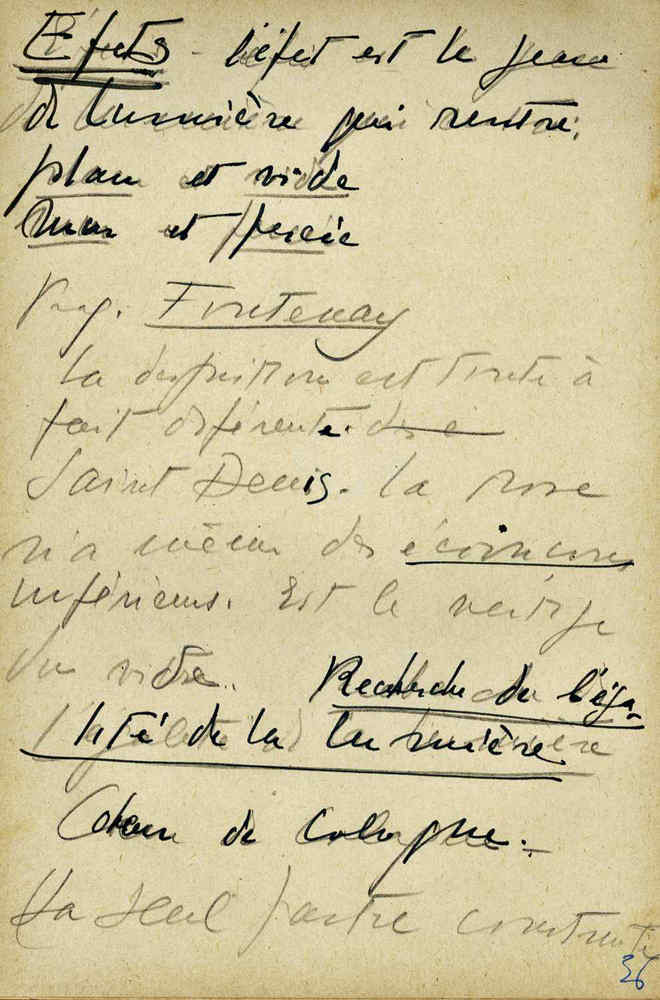 Efets - l'éfet est le jeux
de lumière qui rentre.
plein et vide
mur et percée
Fontenay
La disposition est toute à
fait diférente. des
Saint Denis. La rose
n'a même des écoinçons
inférieurs. Est le vertige
du vide. Recherche de l'éga-
lité de la lumière.
de cologne.
La seul partie construite
36